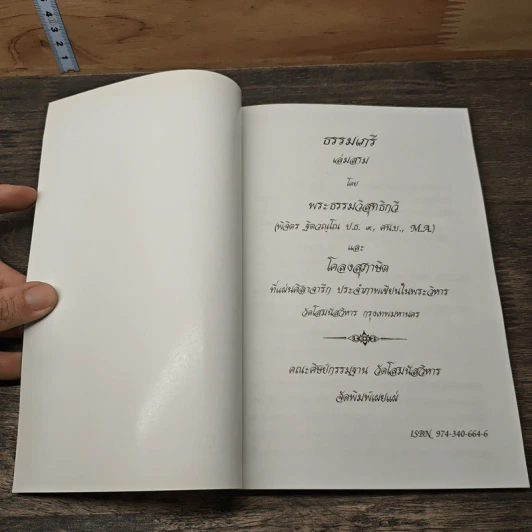 4 3 2 1
ธรรมเภรี
เล่มสาม
โดย
พระธรรมวิสุทธิกวี
(พิจิตร ฐิตวณฺโณ ป.ธ. ๙, ศน.บ., M.A.)
และ
โคลงสุภาษิต
ที่แผ่นศิลาจาริก ประจำภาพเขียนในพระวิหาร
วัดโสมนัสวิหาร กรุงเทพมหานคร
คณะศิษย์กรรมฐาน วัดโสมนัสวิหาร
จัดพิมพ์เผยแผ่
ISBN 974-340-664-6